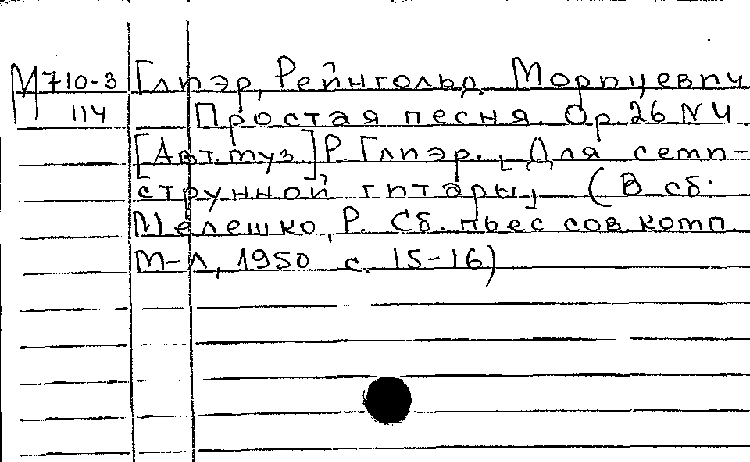 М 710-3 Глиэр, Рейнгольд Морицевич
114 Простая песня. Op. 26 N 4
[Авт. муз.] Р. Глиэр. [Для семи-
струнной гитары] (В сб.
Мелешко, Р. Сб. пьес сов. комп.
М-Л, 1950 с. 15-16)